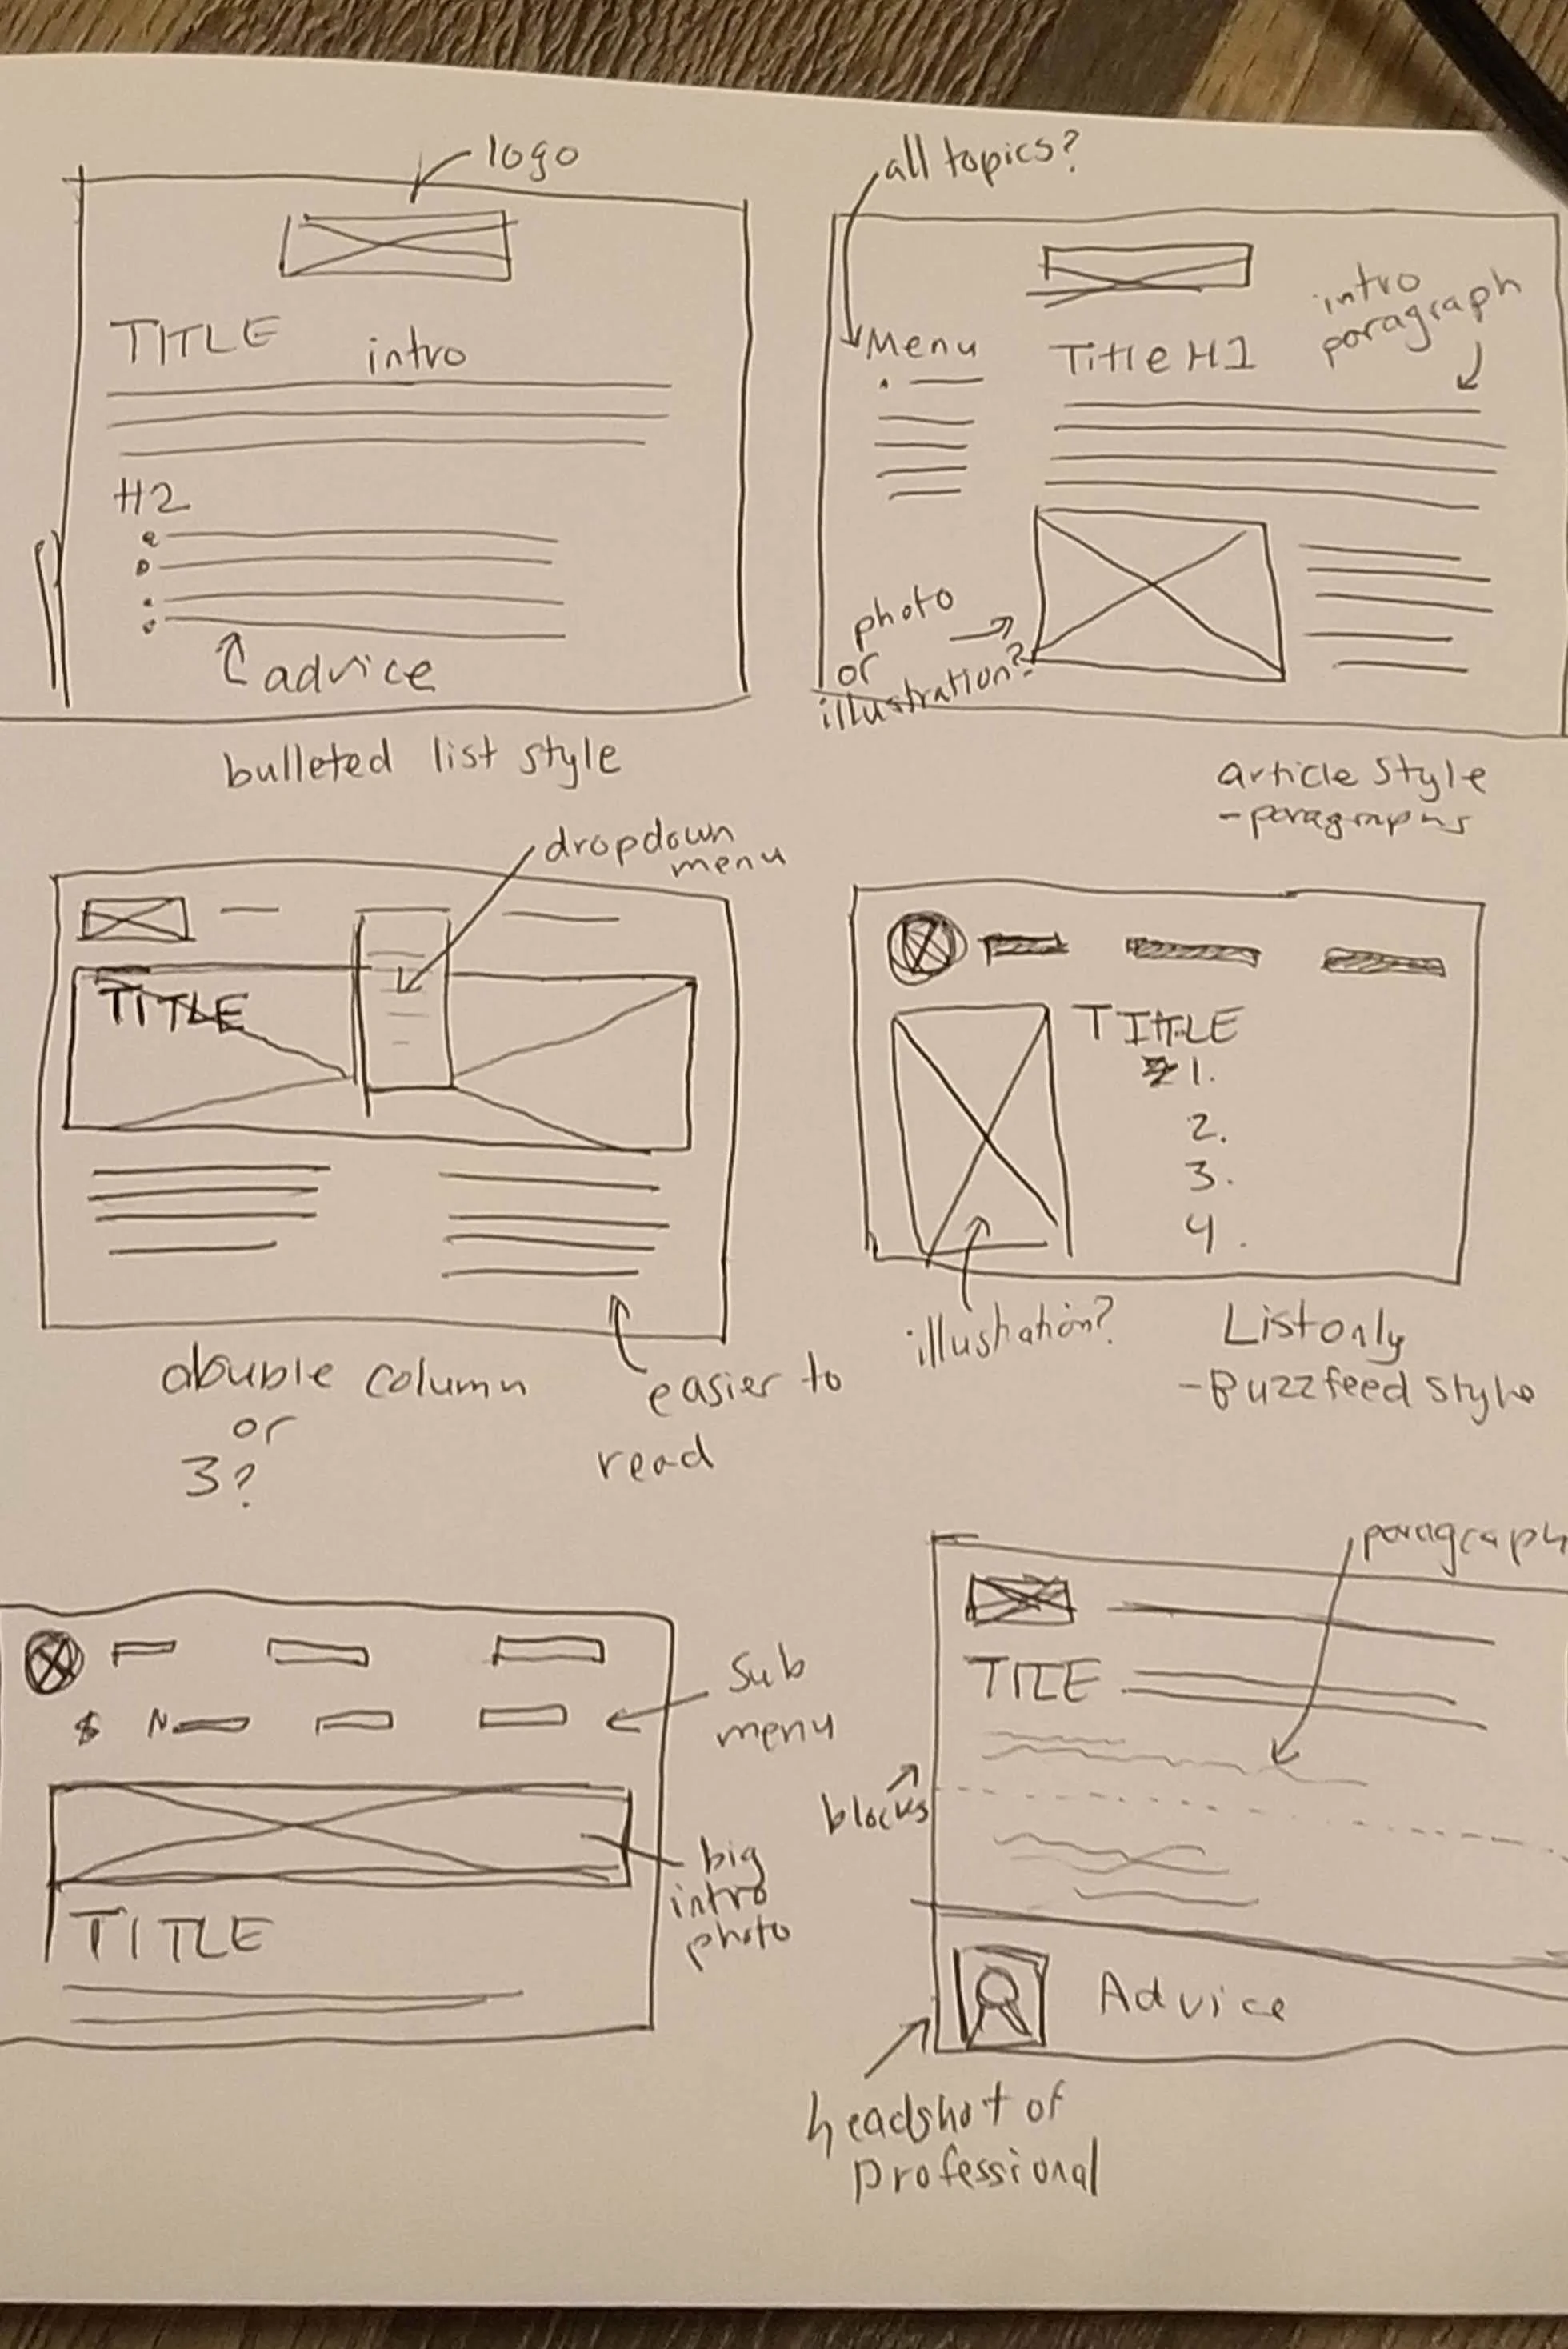 logo
TITLE
intro
H2
advice
bulleted list style
all topics?
Menu
Title H1
intro
paragraph
photo
or
illustration?
article style
- paragraphs
dropdown
menu
TITLE
double column
or
3?
easier to
read
TITLE
1.
2.
3.
4.
illustration?
List only
- Buzzfeed style
Sub
menu
N
big
intro
photo
TITLE
paragraph
TITLE
blocks
Advice
headshot of
professional